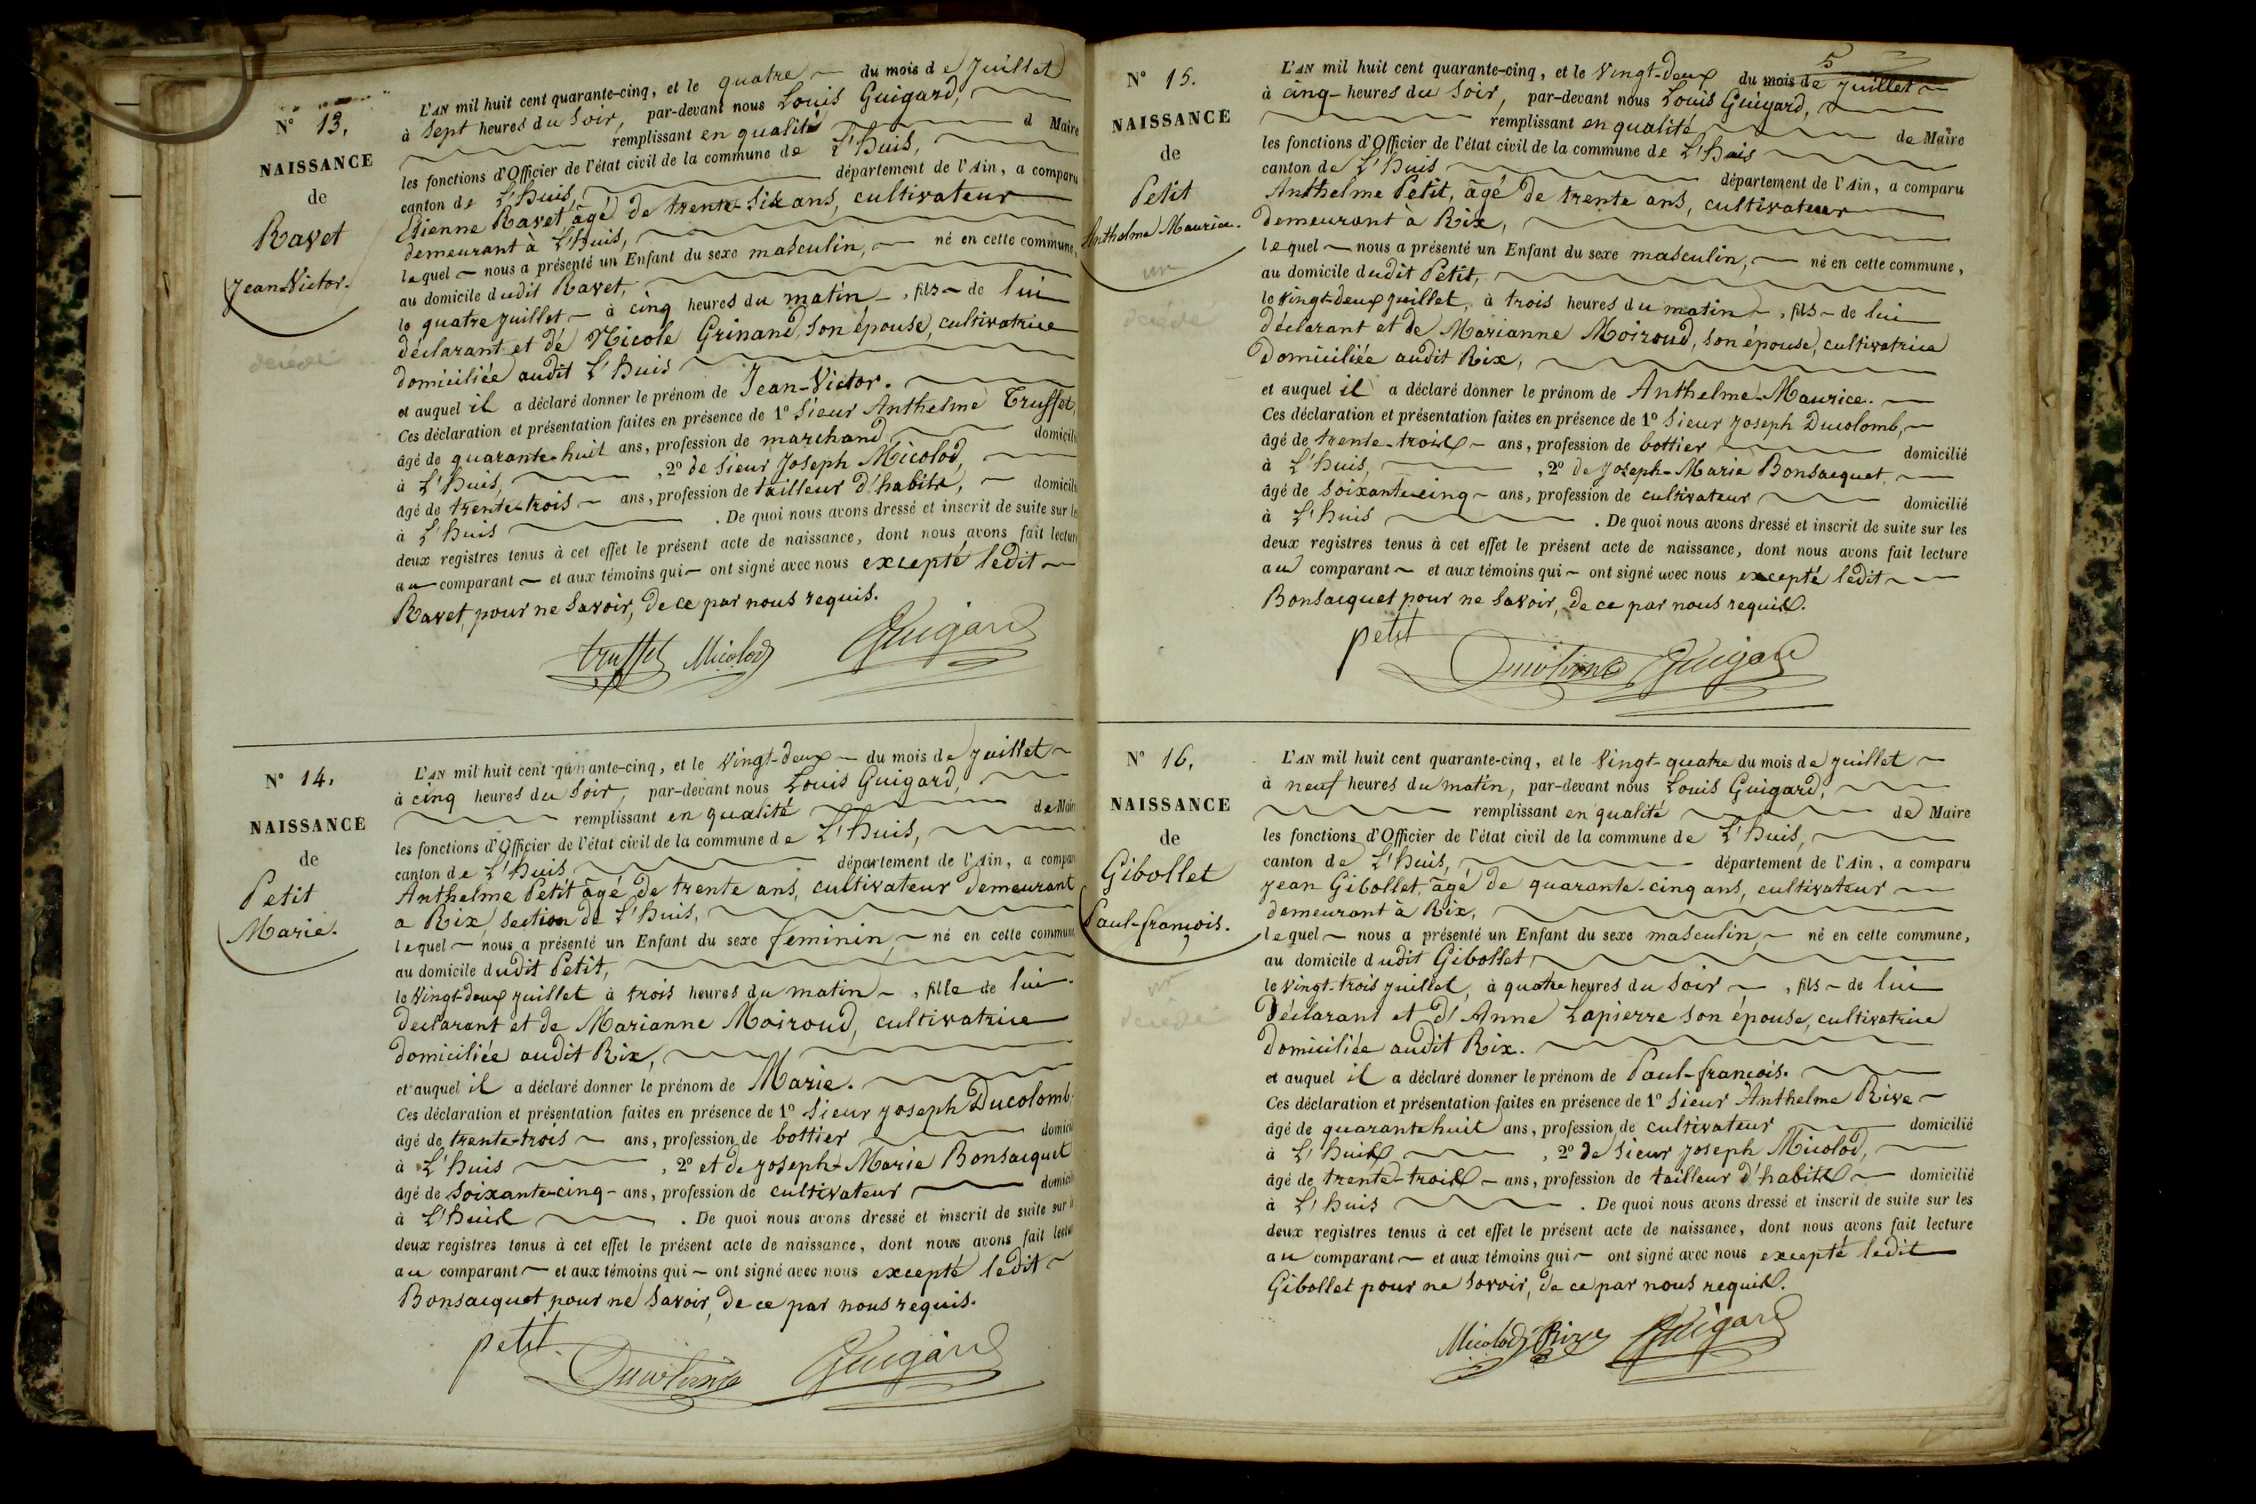 N° 13.
NAISSANCE
de
Ravet
Jean-Victor.
décédé
L'AN mil huit cent quarante-cinq, et le quatre du mois de Juillet
à sept heures du soir, par-devant nous Louis Guigard,
remplissant en qualité d Maire
les fonctions d'Officier de l'état civil de la commune de L'huis,
canton de L'huis, département de l'Ain, a comparu
Etienne Ravet âgé de trente-six ans, cultivateur
demeurant à L'huis,
lequel nous a présenté un Enfant du sexe masculin, né en cette commune,
au domicile dudit Ravet,
le quatre juillet à cinq heures du matin, fils de lui
déclarant et de Nicole Grinand, son épouse, cultivatrice
domiciliée audit L'huis
et auquel il a déclaré donner le prénom de Jean-Victor.
Ces déclaration et présentation faites en présence de 1° Sieur Anthelme Truffet,
âgé de quarante-huit ans, profession de marchand domicili
à L'huis, , 2° de Sieur Joseph Micolod,
âgé de trente-trois ans, profession de tailleur d'habits, domicili
à L'huis . De quoi nous avons dressé et inscrit de suite sur le
deux registres tenus à cet effet le présent acte de naissance, dont nous avons fait lecture
au comparant et aux témoins qui ont signé avec nous excepté ledit
Ravet, pour ne savoir, de ce par nous requis.
truffet Micolod Guigard
N° 14.
NAISSANCE
de
Petit
Marie.
L'AN mil huit cent quarante-cinq, et le Vingt-deux du mois de juillet
à cinq heures du Soir, par-devant nous Louis Guigard,
remplissant en qualité de Maire
les fonctions d'Officier de l'état civil de la commune de L'huis,
canton de L'huis département de l'Ain, a comparu
Anthelme Petit âgé de trente ans, cultivateur demeurant
a Rix, section de L'huis,
lequel nous a présenté un Enfant du sexe feminin, né en cette commune
au domicile dudit Petit,
le Vingt-deux juillet à trois heures du matin, fille de lui
declarant et de Marianne Moiroud, cultivatrice
domiciliée audit Rix,
et auquel il a déclaré donner le prénom de Marie.
Ces déclaration et présentation faites en présence de 1° Sieur Joseph Ducolomb,
âgé de trente-trois ans, profession de bottier domicili
à L'huis , 2° et de Joseph-Marie Bonsacquet
âgé de soixante-cinq ans, profession de cultivateur domicili
à L'huis . De quoi nous avons dressé et inscrit de suite sur le
deux registres tenus à cet effet le présent acte de naissance, dont nous avons fait lecture
au comparant et aux témoins qui ont signé avec nous excepté ledit
Bonsacquet pour ne savoir, de ce par nous requis.
petit Ducolomb Guigard
5
N° 15.
NAISSANCE
de
Petit
Anthelme Maurice.
un
décédé
L'AN mil huit cent quarante-cinq, et le Vingt-deux du mois de juillet
à cinq heures du Soir, par-devant nous Louis Guigard,
remplissant en qualité de Maire
les fonctions d'Officier de l'état civil de la commune de L'huis
canton de L'huis département de l'Ain, a comparu
Anthelme Petit, âgé de trente ans, cultivateur
demeurant à Rix,
lequel nous a présenté un Enfant du sexe masculin, né en cette commune,
au domicile dudit Petit,
le vingt-deux juillet, à trois heures du matin, fils de lui
déclarant et de Marianne Moiroud, son épouse, cultivatrice
domiciliée audit Rix,
et auquel il a déclaré donner le prénom de Anthelme-Maurice.
Ces déclaration et présentation faites en présence de 1° Sieur Joseph Ducolomb,
âgé de trente-trois ans, profession de bottier domicilié
à L'huis, , 2° de Joseph-Marie Bonsacquet,
âgé de soixante-cinq ans, profession de cultivateur domicilié
à L'huis . De quoi nous avons dressé et inscrit de suite sur les
deux registres tenus à cet effet le présent acte de naissance, dont nous avons fait lecture
au comparant et aux témoins qui ont signé avec nous excepté ledit
Bonsacquet pour ne savoir, de ce par nous requis.
petit Ducolomb Guigard
N° 16.
NAISSANCE
de
Gibollet
Paul-françois.
un
décédé
L'AN mil huit cent quarante-cinq, et le Vingt-quatre du mois de juillet
à neuf heures du matin, par-devant nous Louis Guigard,
remplissant en qualité de Maire
les fonctions d'Officier de l'état civil de la commune de L'huis,
canton de L'huis, département de l'Ain, a comparu
Jean Gibollet, âgé de quarante-cinq ans, cultivateur
demeurant à Rix,
lequel nous a présenté un Enfant du sexe masculin, né en cette commune,
au domicile dudit Gibollet,
le vingt-trois juillet, à quatre heures du Soir, fils de lui
Déclarant et d'Anne Lapierre son épouse, cultivatrice
domiciliée audit Rix.
et auquel il a déclaré donner le prénom de Paul-françois.
Ces déclaration et présentation faites en présence de 1° Sieur Anthelme Rive
âgé de quarante huit ans, profession de cultivateur domicilié
à L'huis , 2° de Sieur Joseph Micolod,
âgé de trente-trois ans, profession de tailleur d'habits domicilié
à L'huis . De quoi nous avons dressé et inscrit de suite sur les
deux registres tenus à cet effet le présent acte de naissance, dont nous avons fait lecture
au comparant et aux témoins qui ont signé avec nous excepté ledit
Gibollet pour ne savoir, de ce par nous requis.
Micolod Rive Guigard